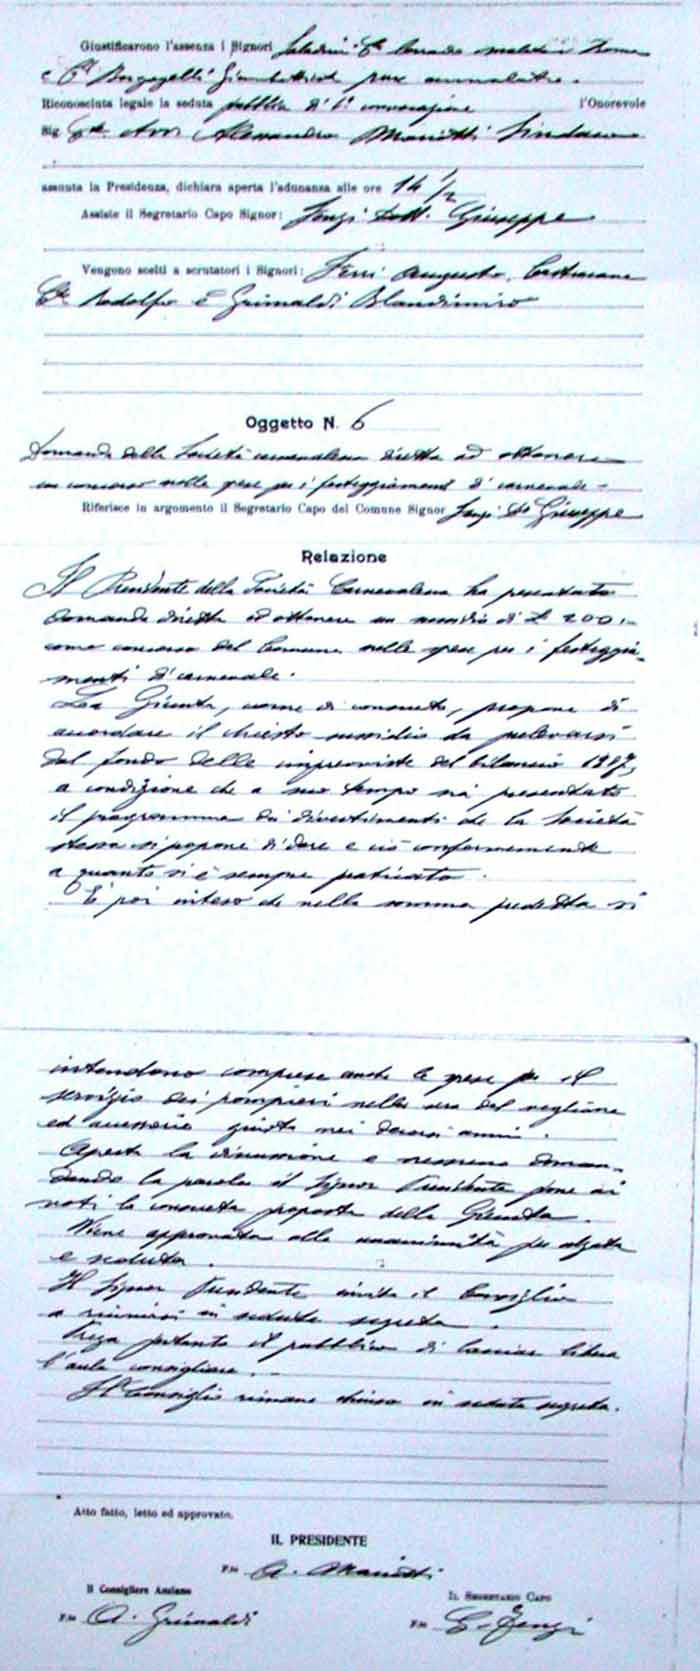 Giustificarono l'assenza i Signori Saladini Cte
e Cte Borgogelli Giambattista pure ammalato.
Riconosciuta legale la seduta pubblica di 1a convocazione l'Onorevole
Sig. Cte. Avv. Alessandro Mariotti Sindaco
assunta la Presidenza, dichiara aperta l'adunanza alle ore 14 1/2
Assiste il Segretario Capo Signor: Dott. Giuseppe
Vengono scelti a scrutatori i Signori: Ferri Augusto,
Cte Rodolfo e Grimaldi Blandimiro
Oggetto N. 6
Domanda della Società carnevalesca diretta ad ottenere
un concorso nelle spese per i festeggiamenti di carnevale -
Riferisce in argomento il Segretario Capo del Comune Signor Dr Giuseppe
Relazione
Il Presidente della Società Carnevalesca ha presentato
domanda diretta ad ottenere un sussidio di £ 200.-
come concorso del Comune nelle spese per i festeggia-
menti di carnevale.
La Giunta, come di consueto, propone di
accordare il chiesto sussidio da prelevarsi
dal fondo delle impreviste del bilancio
a condizione che a suo tempo sia presentato
il programma dei divertimenti che la Società
stessa si propone di dare e ciò conformemente
a quanto si è sempre praticato.
È poi inteso che nella somma predetta si
intendono comprese anche le spese per il
servizio dei pompieri nella sera del veglione
ed accessorie giusta nei decorsi anni.
Aperta la discussione e nessuno doman-
dando la parola il Signor Presidente pone ai
voti la concreta proposta della Giunta.
Viene approvata alla unanimità per alzata
e seduta.
Il Signor Presidente invita il Consiglio
a riunirsi in seduta segreta.
Prega pertanto il pubblico di lasciar libera
l'aula consigliare.
Il Consiglio rimane chiuso in seduta segreta.
Atto fatto, letto ed approvato.
IL PRESIDENTE
F.to A. Mariotti
Il Consigliere Anziano
IL SEGRETARIO CAPO
F.to A. Grimaldi
F.to G.